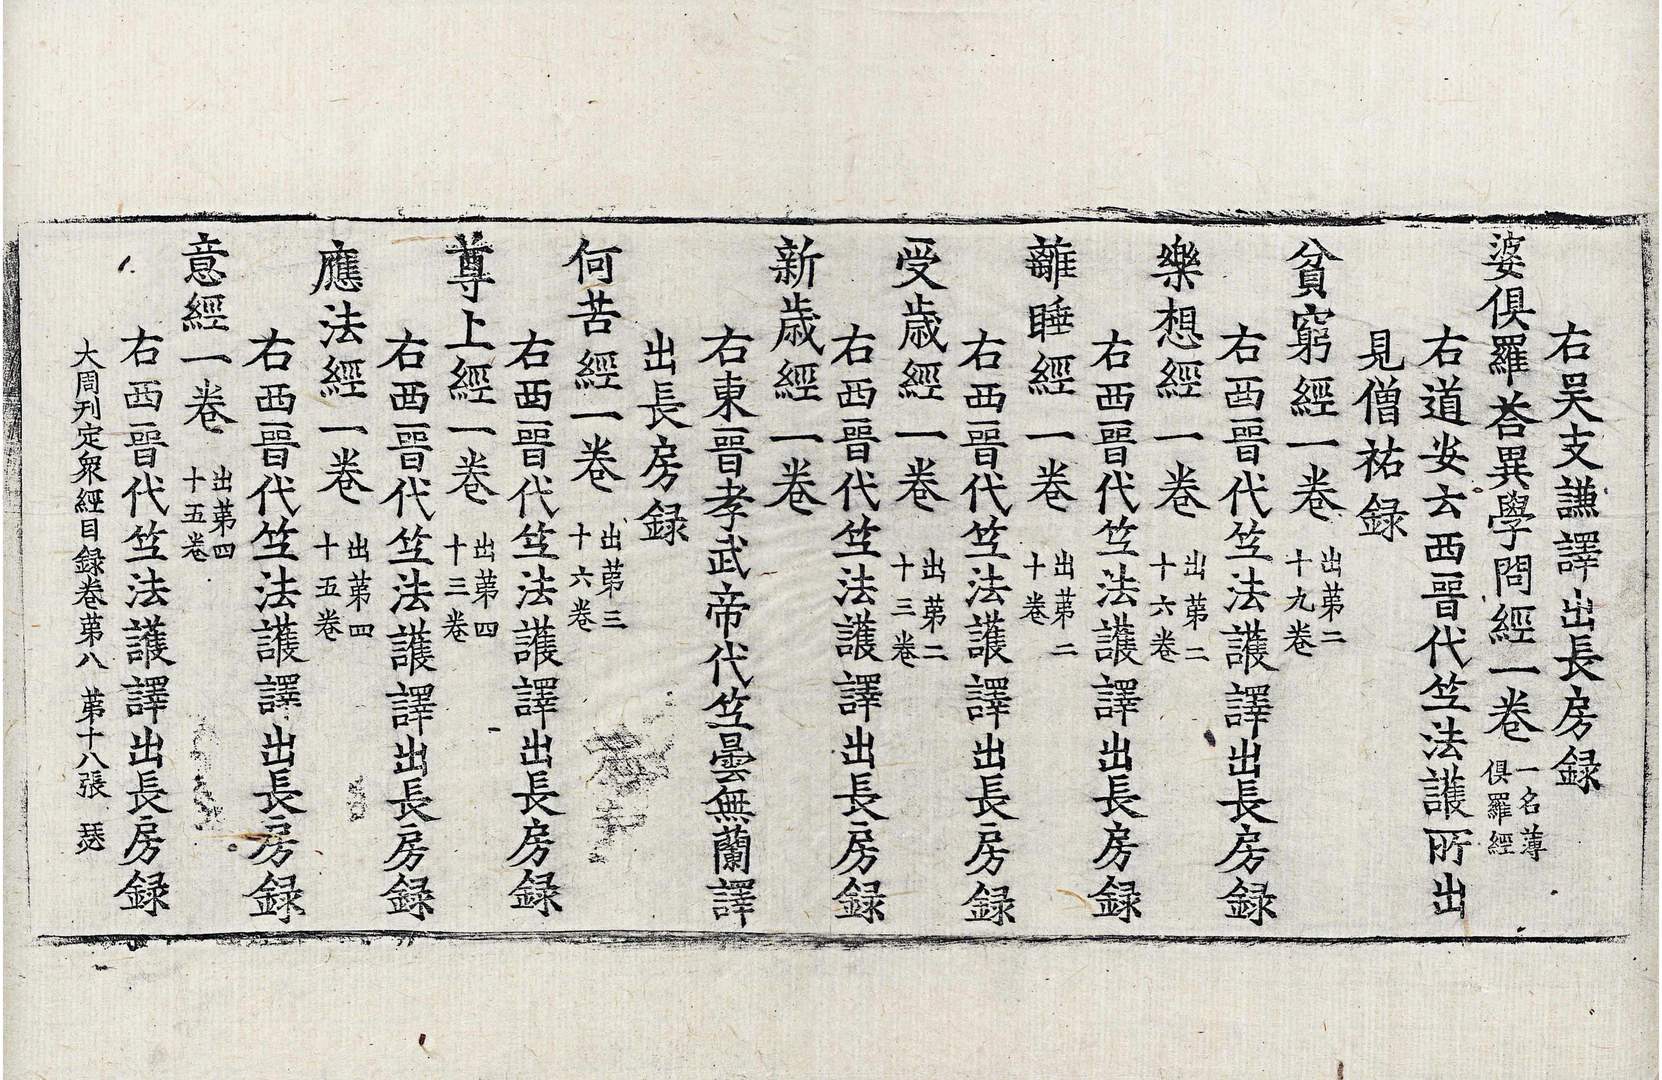 右吴支謙譯出長房録
婆俱羅荅異學問經一卷 一名薄俱羅經
右道安云西晉代竺法護所出
見僧祐録
貧窮經一卷 出苐二十九卷
右西晉代竺法護譯出長房録
樂想經一卷 出苐二十六卷
右西晉代竺法護譯出長房録
離睡經一卷 出苐二十卷
右西晉代竺法護譯出長房録
受歲經一卷 出苐二十三卷
右西晉代竺法護譯出長房録
新歲經一卷
右東晉孝武帝代竺曇無蘭譯
出長房録
何苦經一卷 出苐三十六卷
右西晉代竺法護譯出長房録
尊上經一卷 出苐四十三卷
右西晉代竺法護譯出長房録
應法經一卷 出苐四十五卷
右西晉代竺法護譯出長房録
意經一卷 出苐四十五卷
右西晉代竺法護譯出長房録
大周刊定衆經目録卷苐八 苐十八張 瑟